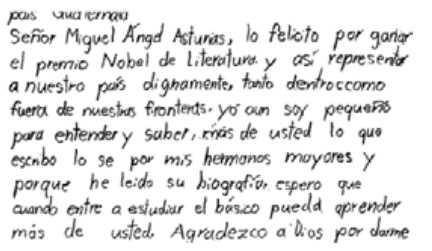 pais Guatemala
Señor Miguel Ángel Asturias, lo felicito por ganar
el premio Nobel de Literatura y así representar
a nuestro país dignamente, tanto dentro como
fuera de nuestras fronteras. yo aun soy pequeño
para entender y saber, más de usted lo que
escribo lo se por mis hermanos mayores y
porque he leido su biografía, espero que
cuando entre a estudiar el básico pueda aprender
más de usted. Agradezco a Dios por darme